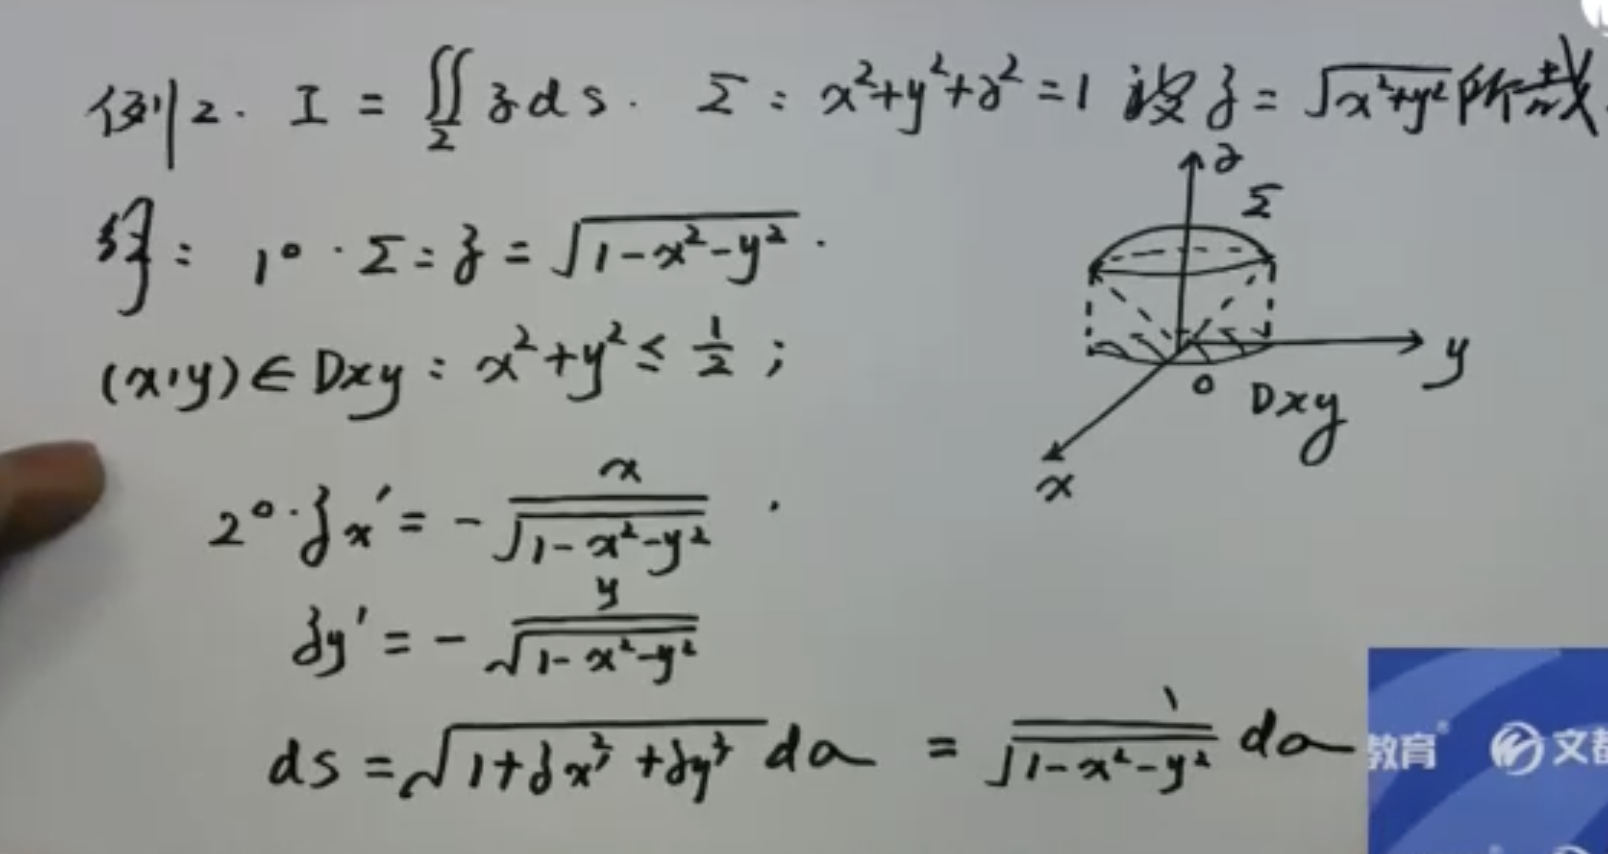 例2. I = ∬_Σ z ds. Σ: x²+y²+z²=1 被 z=√(x²+y²) 所截.
解: 1°. Σ: z = √(1-x²-y²).
(x,y)∈Dxy: x²+y² ≤ 1/2;
2°. zx' = - x/√(1-x²-y²).
zy' = - y/√(1-x²-y²)
ds = √(1+zx'²+zy'²) dσ = 1/√(1-x²-y²) dσ
z
Σ
y
0
Dxy
x
教育 文都